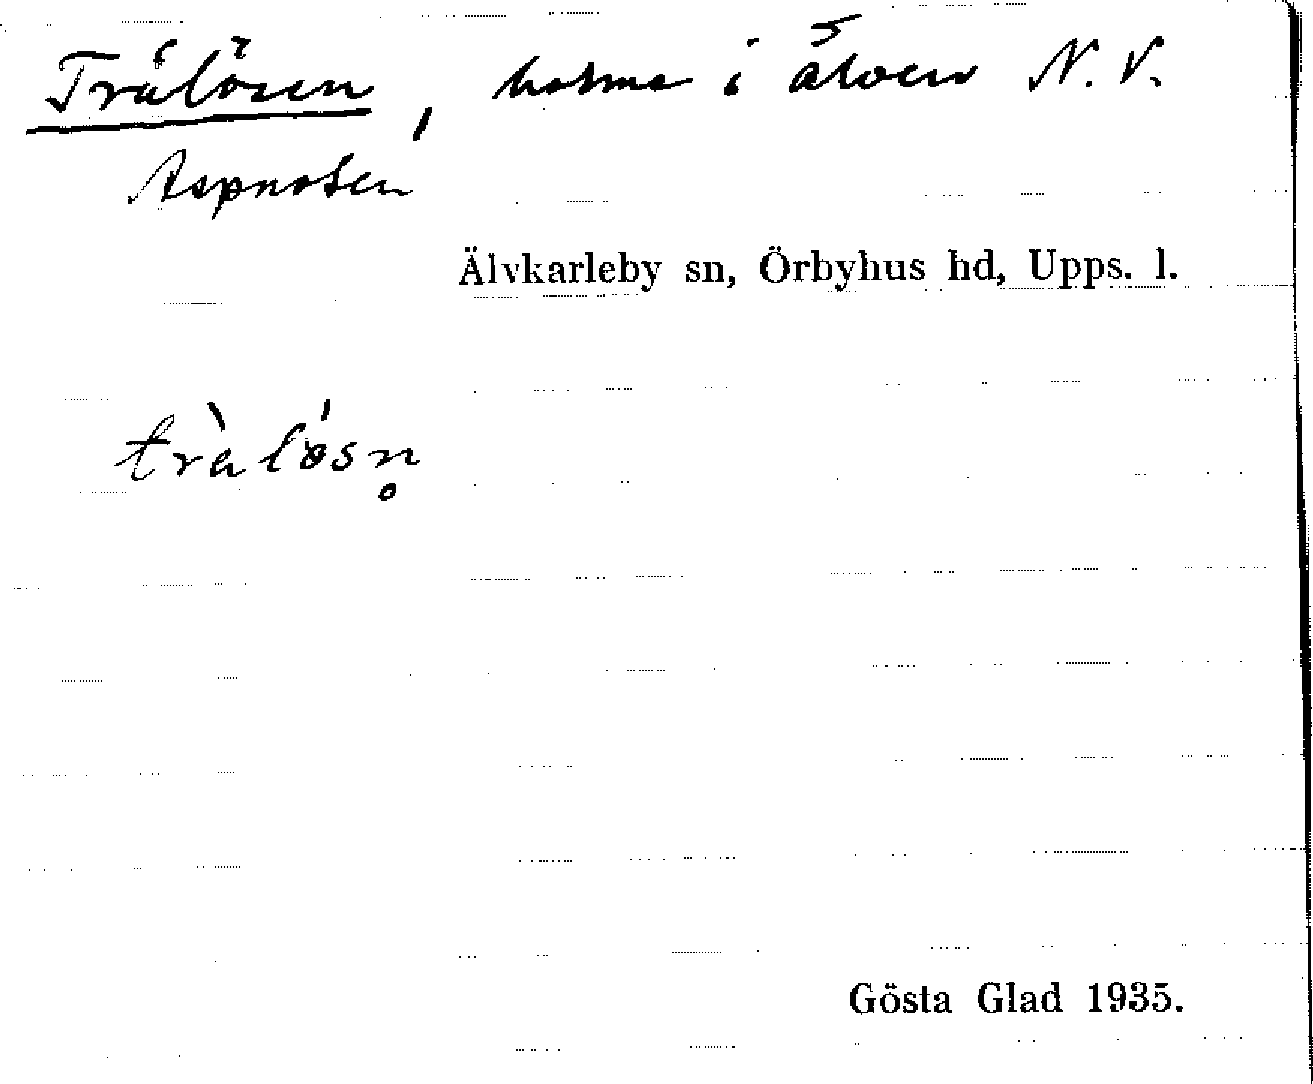 Trälösen, holme i älven N.V.
Aspnoten
Älvkarleby sn, Örbyhus hd, Upps. l.
trà lósn̥
Gösta Glad 1935.